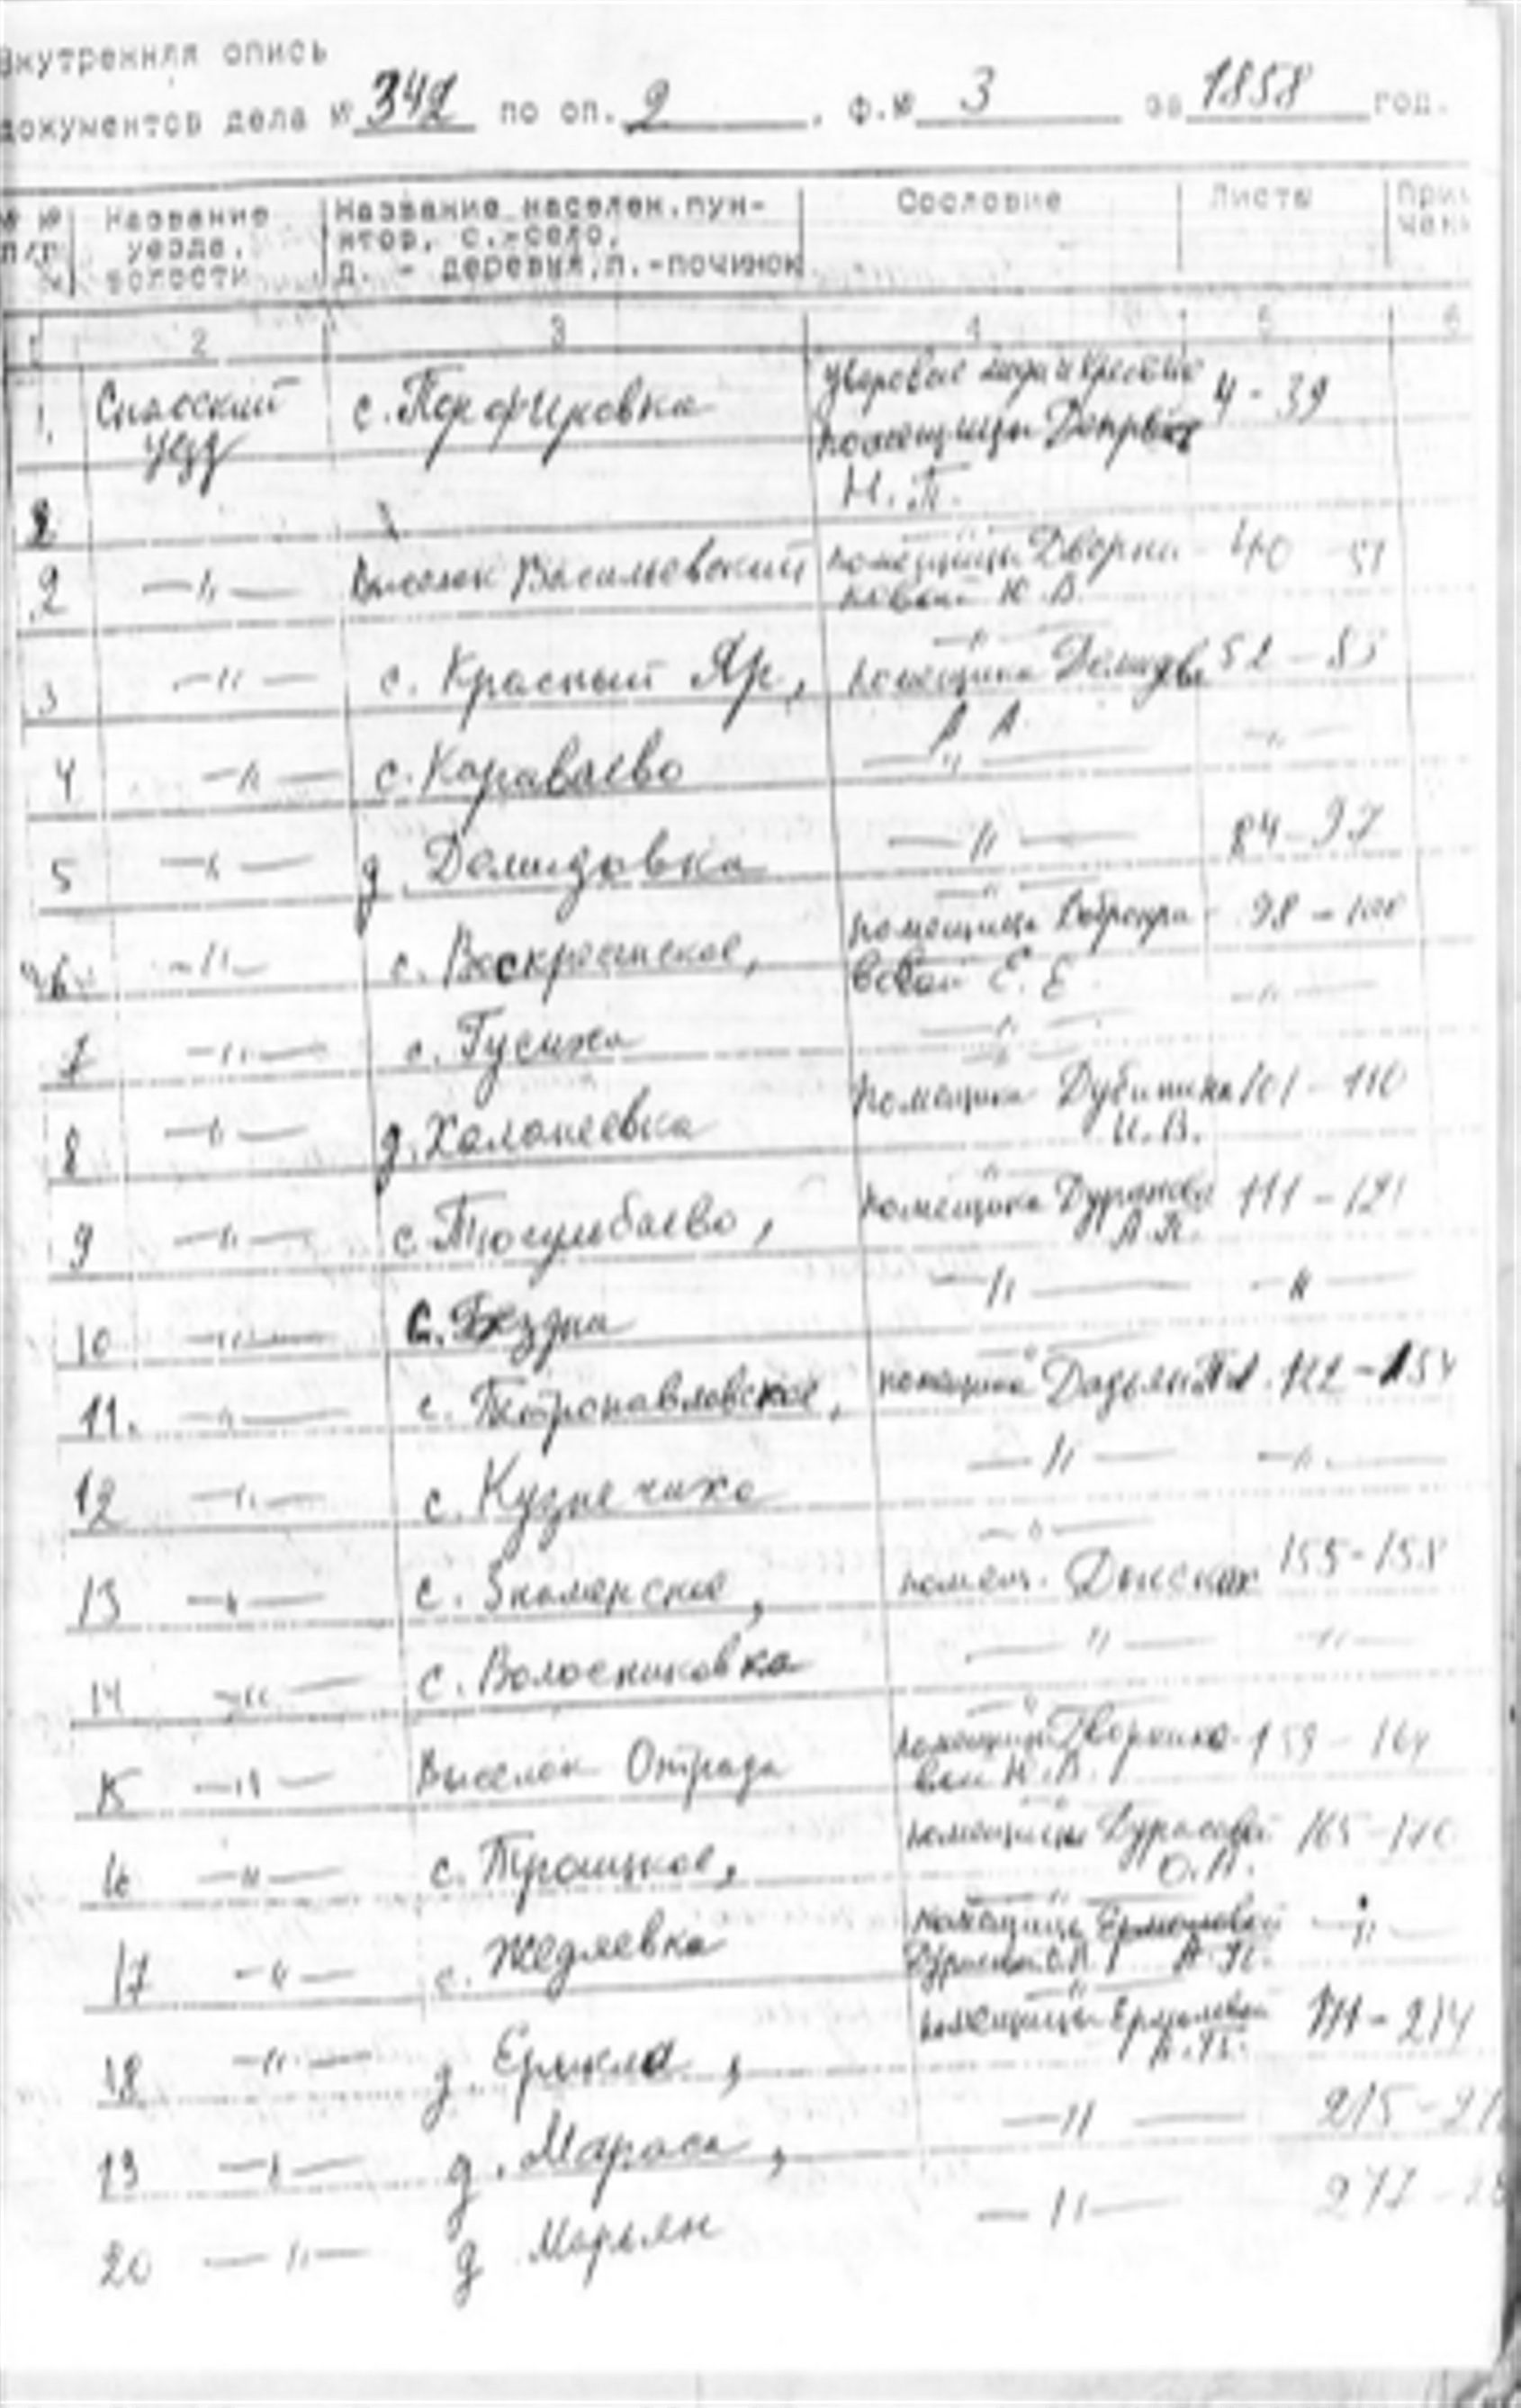 Внутренняя опись
документов дела № 342 по оп. 2, ф.№ 3 за 1858 год.
№ № п/п Название уезда, волости Название населен.пунктов, с.-село, д. - деревня,п.-починок Сословие Листы При чан
1 2 3 4 5 6
1. Спасский уезд с. Порфировка помещицы Н.П. 4 - 39
2
2 —"— Выселок Васильевский —"— помещицы Дворни ковой Ю.В. 40 51
3 —"— с. Красный Яр, —"— помещика Демидова А А. 52 - 83
4 —"— с. Караваево —"— —"—
5 —"— д. Демидовка —"— 84 - 97
6 —"— с. Воскресенское, —"— помещицы Е. Е. 98 - 100
7 —"— с. Гусиха —"— —"—
8 —"— д. Халопеевка —"— помещика И.В. 101 - 110
9 —"— с. —"— помещика 111 - 121
10 —"— с. Бездна —"— —"—
11. —"— с. Петропавловское, —"— помещика Дадьян 122 - 154
12 —"— с. Кузнечиха —"— —"—
13 —"— с. Знаменское, —"— помещ. Донских 155 - 158
14 —"— с. Волосниковка —"— —"—
15 —"— Выселок Отрада —"— помещицы Дворнико вой Ю.В. 159 - 164
16 —"— с. Троицкое, —"— помещицы Дурасовой О.А. 165 - 170
17 —"— с. Жедяевка —"— помещицы Ермоловой А.П. —"—
18 —"— д. Ерыкла, —"— помещицы Ермоловой А.П. 171 - 214
19 —"— д. Мараса, —"— 215 -
20 —"— д Марьян —"— 277 -